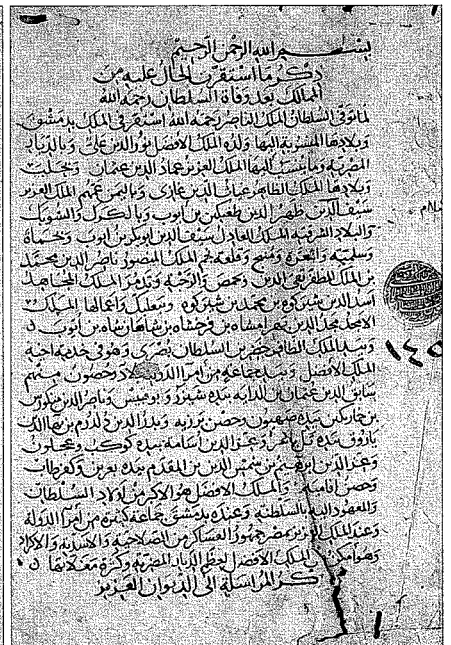 بسم الله الرحمن الرحيم
ذكر ما استقرت الحال عليه من
الممالك بعد وفاة السلطان رحمه الله
لما توفي السلطان الملك الناصر رحمه الله استقر في الملك بدمشق
وبلادها المنسوبة اليها ولده الملك الافضل نور الدين علي وبالديار
المصرية وما ينسب اليها الملك العزيز عماد الدين عثمان وبحلب
وبلادها الملك الظاهر غياث الدين غازي وباليمن عمهم الملك العزيز
سيف الدين ظهير الدين طغتكين بن ايوب وبالكرك والشوبك
والبلاد الشرقية الملك العادل سيف الدين ابو بكر بن ايوب وبحماة
وسلمية والمعرة ومنبج وقلعة نجم الملك المنصور ناصر الدين محمد
بن الملك المظفر تقي الدين وبحمص والرحبة وتدمر الملك المجاهد
اسد الدين شيركوه بن محمد بن شيركوه وببعلبك واعمالها الملك
الامجد مجد الدين بهرامشاه بن فرخشاه بن شاهانشاه بن ايوب
وبيد الملك الظافر خضر بن السلطان بصرى وهو في خدمة اخيه
الملك الافضل وبيد جماعة من امراء الدولة بلاد وحصون منهم
سابق الدين عثمان بن الداية بيده شيزر وابو قبيس وناصر الدين منكورس
بن خمارتكين بيده صهيون وحصن برزيه وبدر الدين دلدرم بن بها الدين
ياروق بيده تل باشر وعز الدين اسامة بيده كوكب وعجلون
وعز الدين ابرهيم بن شمس الدين بن المقدم بيده بعرين وكفرطاب
وحصن افامية والملك الافضل هو الاكبر من اولاد السلطان
والمعهود اليه بالسلطنة وعنده بدمشق جماعة كثيرة من امراء الدولة
وعند الملك العزيز بمصر جمهور العساكر من الصلاحية والاسدية والاكراد
ذكر المراسلة الى الديوان العزيز
١٤٥